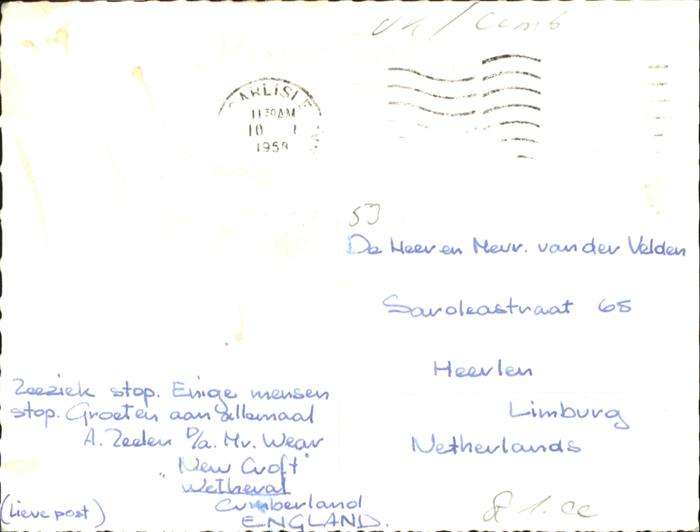 CARLISLE
11 30 AM
10
1958
53
De Heer en Mevr. van der Velden
Saroleastraat 65
Heerlen
Limburg
Netherlands
Zeeziek stop. Einige mensen
stop. Groeten aan allemaal
A. Zeelen P/a. Mr. Wear
"New Croft"
Wetheral
Cumberland
ENGLAND.
(Lieve post)